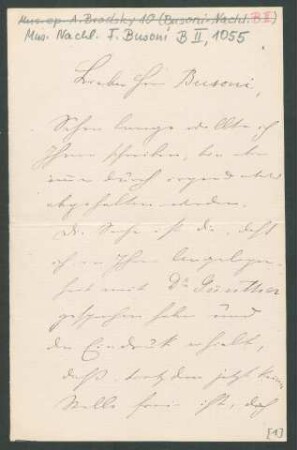 Mus. ep. A. Brodsky 10 (Busoni-Nachl. B II)
Mus. Nachl. F. Busoni B II, 1055
Lieber Herr Busoni,
Schon lange wollte ich
Ihnen schreiben, bin aber
immer durch irgend etwas
abgehalten worden.
Die Sache ist die, daß
ich in Ihrer Angelegen-
heit mit Dr Günther
gesprochen habe und
den Eindruck erhielt,
daß, trotzdem jetzt keine
Stelle frei ist, doch
[1]